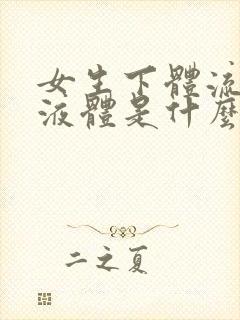 女生下體流
液體是什麼
二之夏